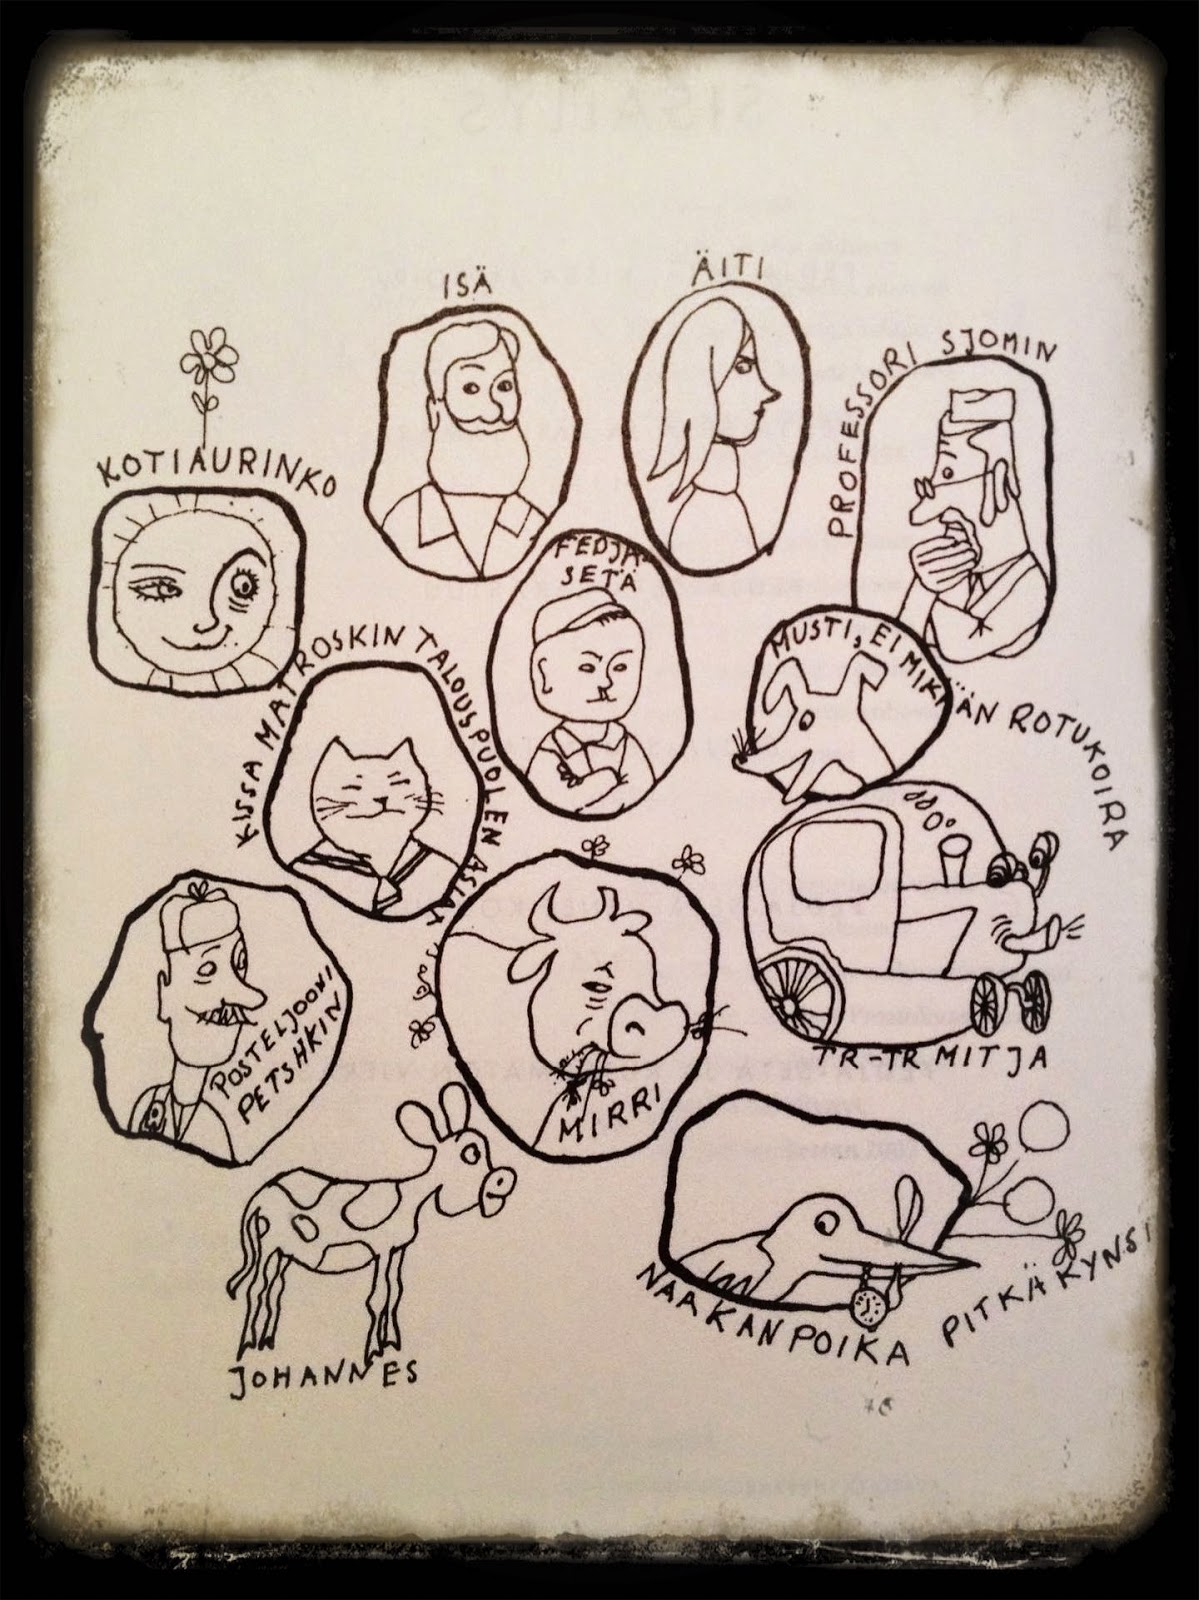 SISÄLLYS
ISÄ
ÄITI
PROFESSORI SJOMIN
KOTIAURINKO
FEDJA-
SETÄ
MUSTI, EI MIKÄÄN ROTUKOIRA
KISSA MATROSKIN TALOUSPUOLEN
POSTELJOONI
PETSHKIN
MIRRI
TR-TR MITJA
JOHANNES
NAAKANPOIKA PITKÄKYNSI